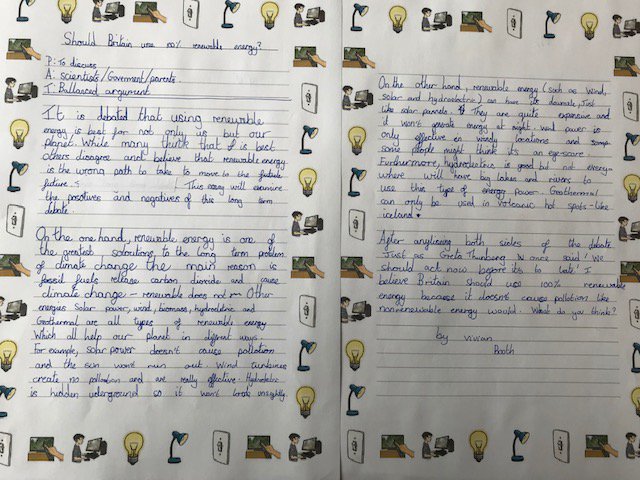 Should Britain use 100% renewable energy?
P: To discuss
A: scientists/Goverment/parents
T: Ballanced argument
It is debated that using renewable
energy is best for not only us but our
planet. While many think that if is best
others disagree and believe that renewable energy
is the wrong path to take to move to the future
future. This essay will examine
the posotives and negatives of this long term
debate.
On the one hand, renewable energy is one of
the greatest solioutions to the long term problem
of climate change the main reason is
fossil fuels release carbon dioxide and cause
climate change - renewable does not - Other
energies Solar power, wind, biomass, hydroelectric and
Geothermal are all types of renewable energy
Which all help our planet in different ways.
For example, solar power doesn't cause pollution
and the sun won't run out. Wind turbines
create no pollution and are really effective. Hydroelectric
is hidden uderground so it won't look unsightly.
On the other hand, renewable energy (such as wind,
solar and hydroelectric) can have its downside, Just
like solar pannels. They are quite expensive and
it won't generate energy at night. wind power is
only effective on windy locations and
some people might think its an eye-score.
Furthermore, hydroelectric is good but not every-
where will have big lakes and rivers to
use this type of energy power. Geothermal
can only be used in volcanic hot spots - like
iceland.
After anylising both sides of the debate.
Just as Greta Thunberg once said 'We
should act now before its to late' I
believe Britain should use 100% renewable
energy because it doesn't cause pollotion like
non-renewable energy would. What do you think?
by vivian
Booth